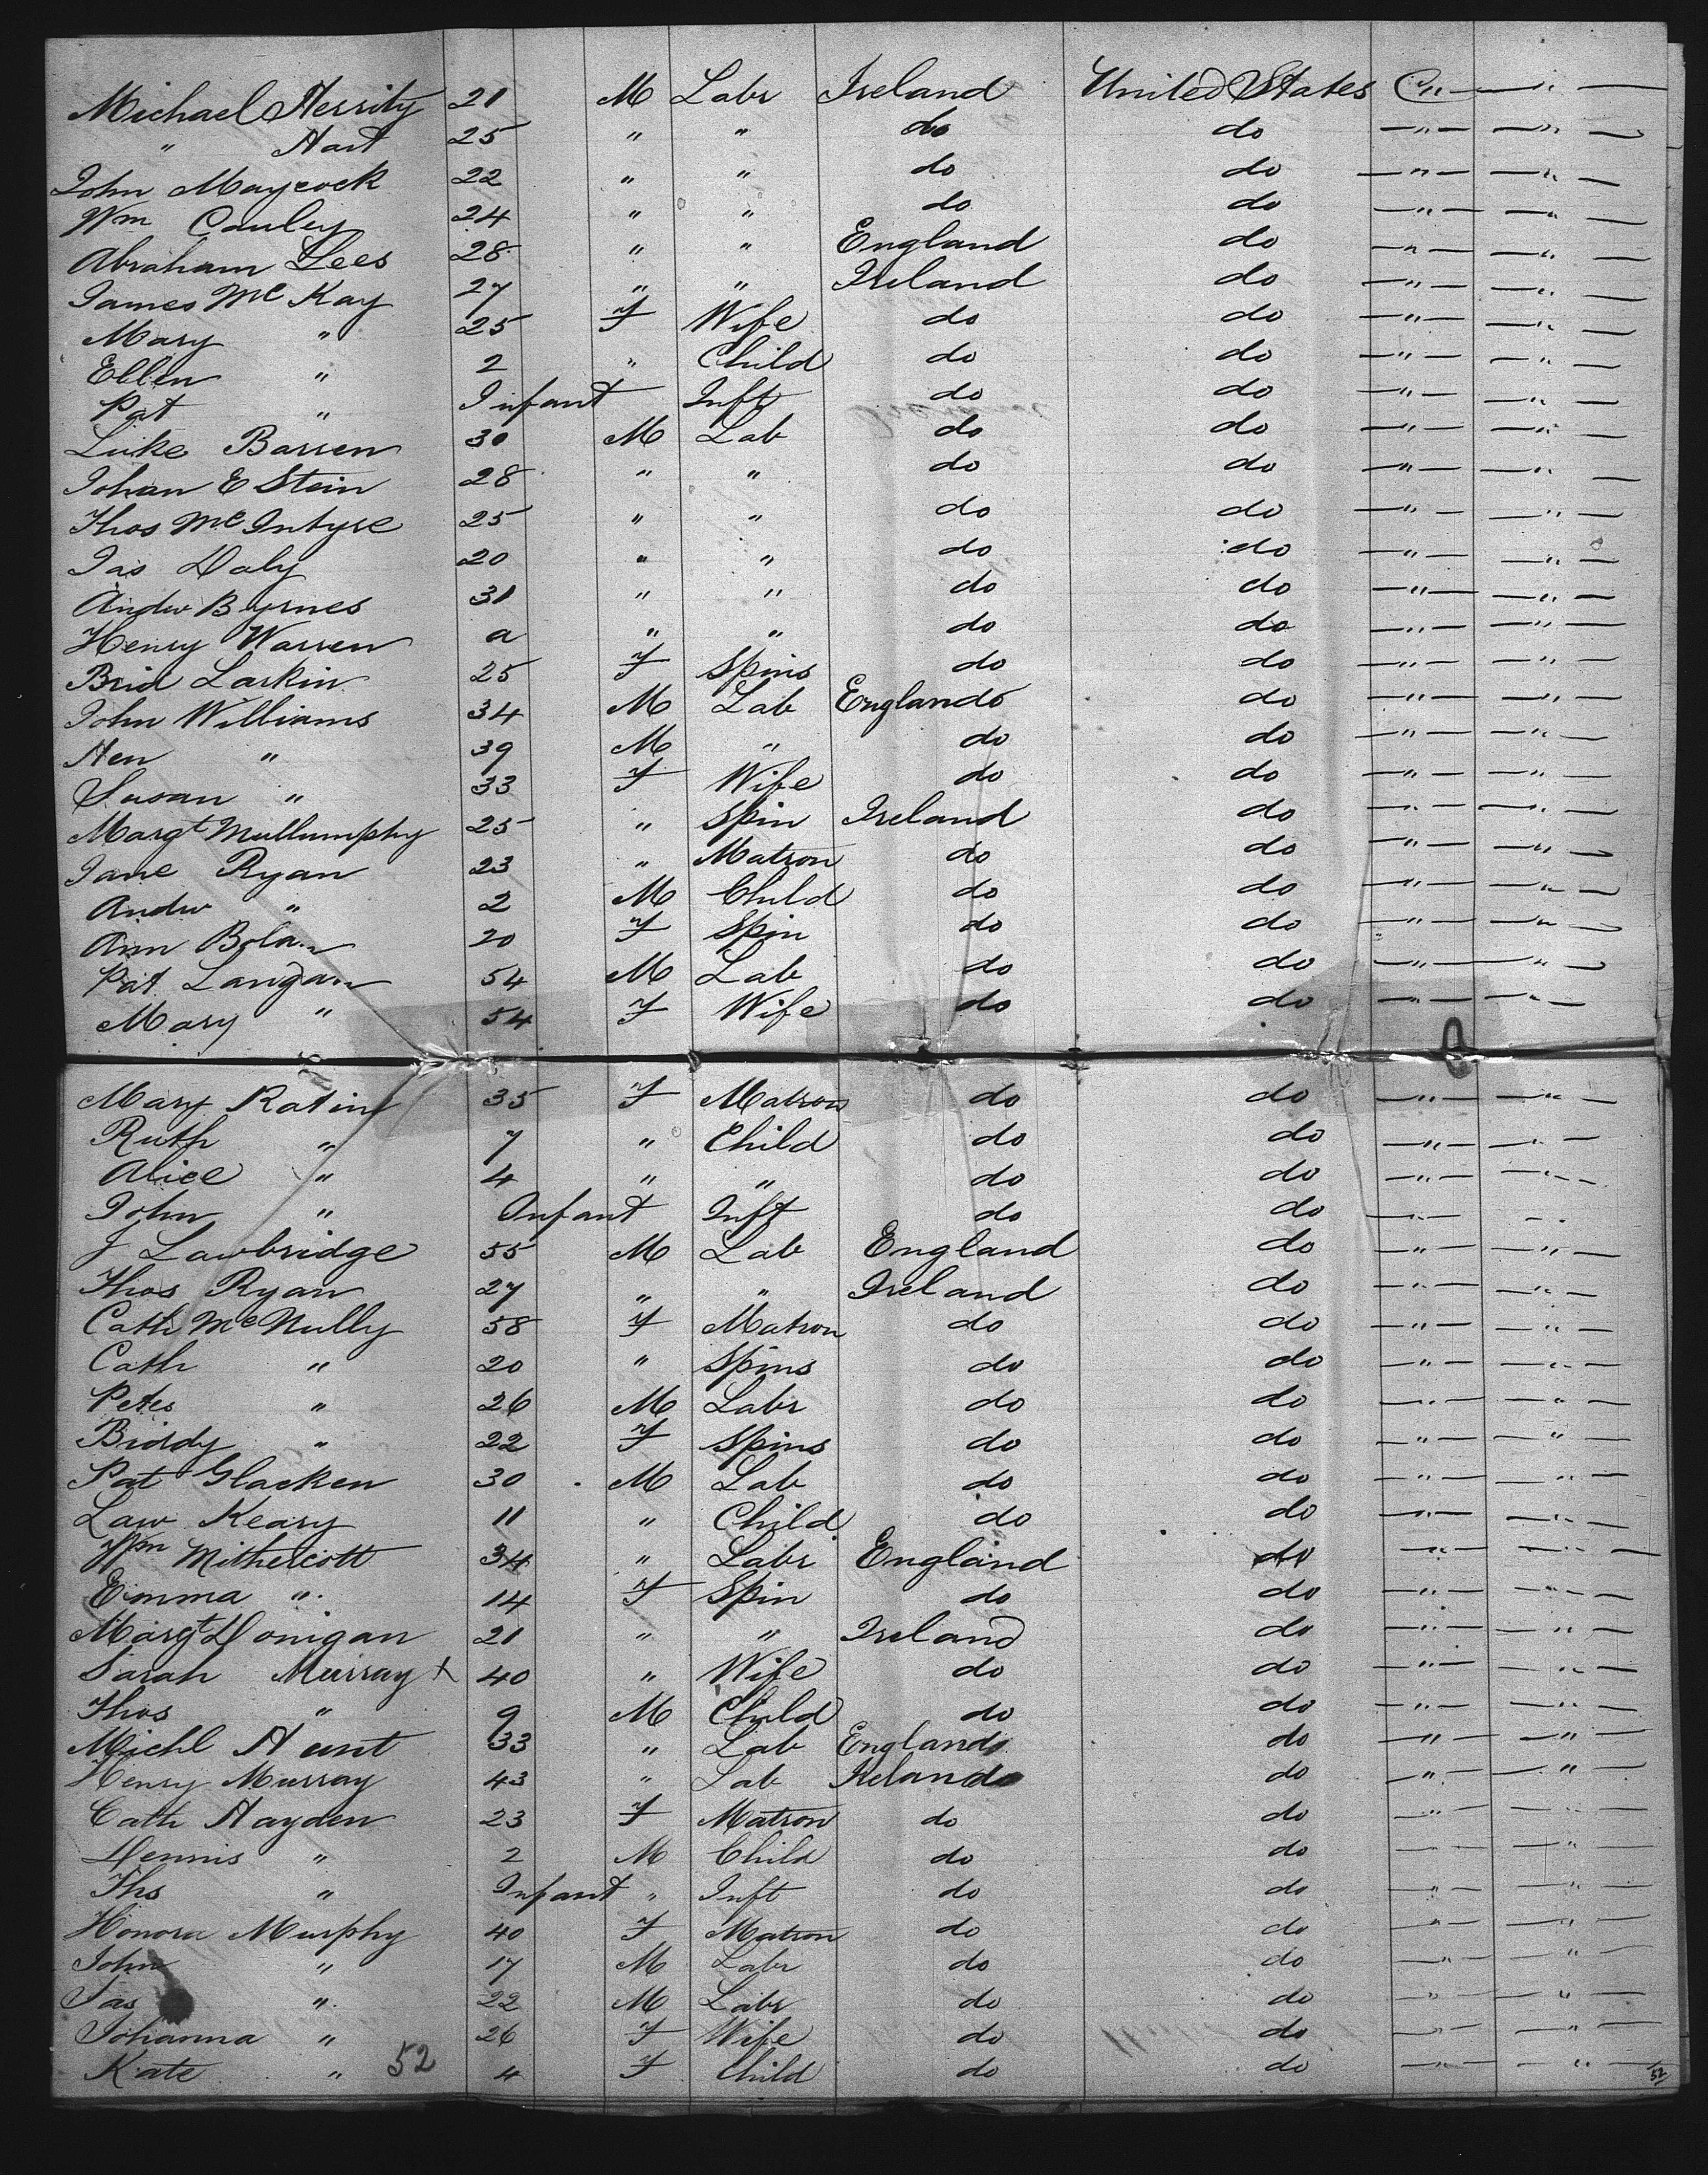 Michael Herrity 21 M Labr Ireland United States C " — " —
" Hart 25 " " do do — " — — " —
John Maycock 22 " " do do — " — — " —
Wm Cauley 24 " " do do — " — — " —
Abraham Lees 28 " " England do — " — — " —
James McKay 27 " " Ireland do — " — — " —
Mary " 25 F Wife do do — " — — " —
Ellen " 2 " Child do do — " — — " —
Pat " Infant Inft do do — " — — " —
Luke Barren 30 M Lab do do — " — — " —
Johan E Stein 28 " " do do — " — — " —
Thos McIntyre 25 " " do do — " — — " —
Jas Daly 20 " " do do — " — — " —
Andw Byrnes 31 " " do do — " — — " —
Henry Warren a " " do do — " — — " —
Brid Larkin 25 F Spins do do — " — — " —
John Williams 34 M Lab England do — " — — " —
Hen " 39 M " do do — " — — " —
Susan " 33 F Wife do do — " — — " —
Margt Mullumphy 25 " Spin Ireland do — " — — " —
Jane Ryan 23 " Matron do do — " — — " —
Andw " 2 M Child do do — " — — " —
Ann Bolan 20 F Spin do do — " — — " —
Pat Langan 54 M Lab do do — " — — " —
Mary " 54 F Wife do do — " — — " —
Mary Ratin 35 F Matron do do — " — — " —
Ruth " 7 " Child do do — " — — " —
Alice " 4 " " do do — " — — " —
John " Infant Inft do do — " — — " —
J Lawbridge 55 M Lab England do — " — — " —
Thos Ryan 27 " " Ireland do — " — — " —
Cath McNully 58 F Matron do do — " — — " —
Cath " 20 " Spins do do — " — — " —
Peter " 26 M Labr do do — " — — " —
Biddy " 22 F Spins do do — " — — " —
Pat Glacken 30 M Lab do do — " — — " —
Law Keary 11 " Child do do — " — — " —
Wm Mithercott 34 " Labr England do — " — — " —
Emma " 14 F Spin do do — " — — " —
Margt Donigan 21 " " Ireland do — " — — " —
Sarah Murray x 40 " Wife do do — " — — " —
Thos " 9 M Child do do — " — — " —
Michl Hunt 33 " Lab England do — " — — " —
Henry Murray 43 " Lab Ireland do — " — — " —
Cath Hayden 23 F Matron do do — " — — " —
Dennis " 2 M Child do do — " — — " —
Ths " Infant " Inft do do — " — — " —
Honora Murphy 40 F Matron do do — " — — " —
John " 17 M Labr do do — " — — " —
Jas " 22 M Labr do do — " — — " —
Johanna " 26 F Wife do do — " — — " —
Kate " 52 4 F Child do do — " — — " — 52